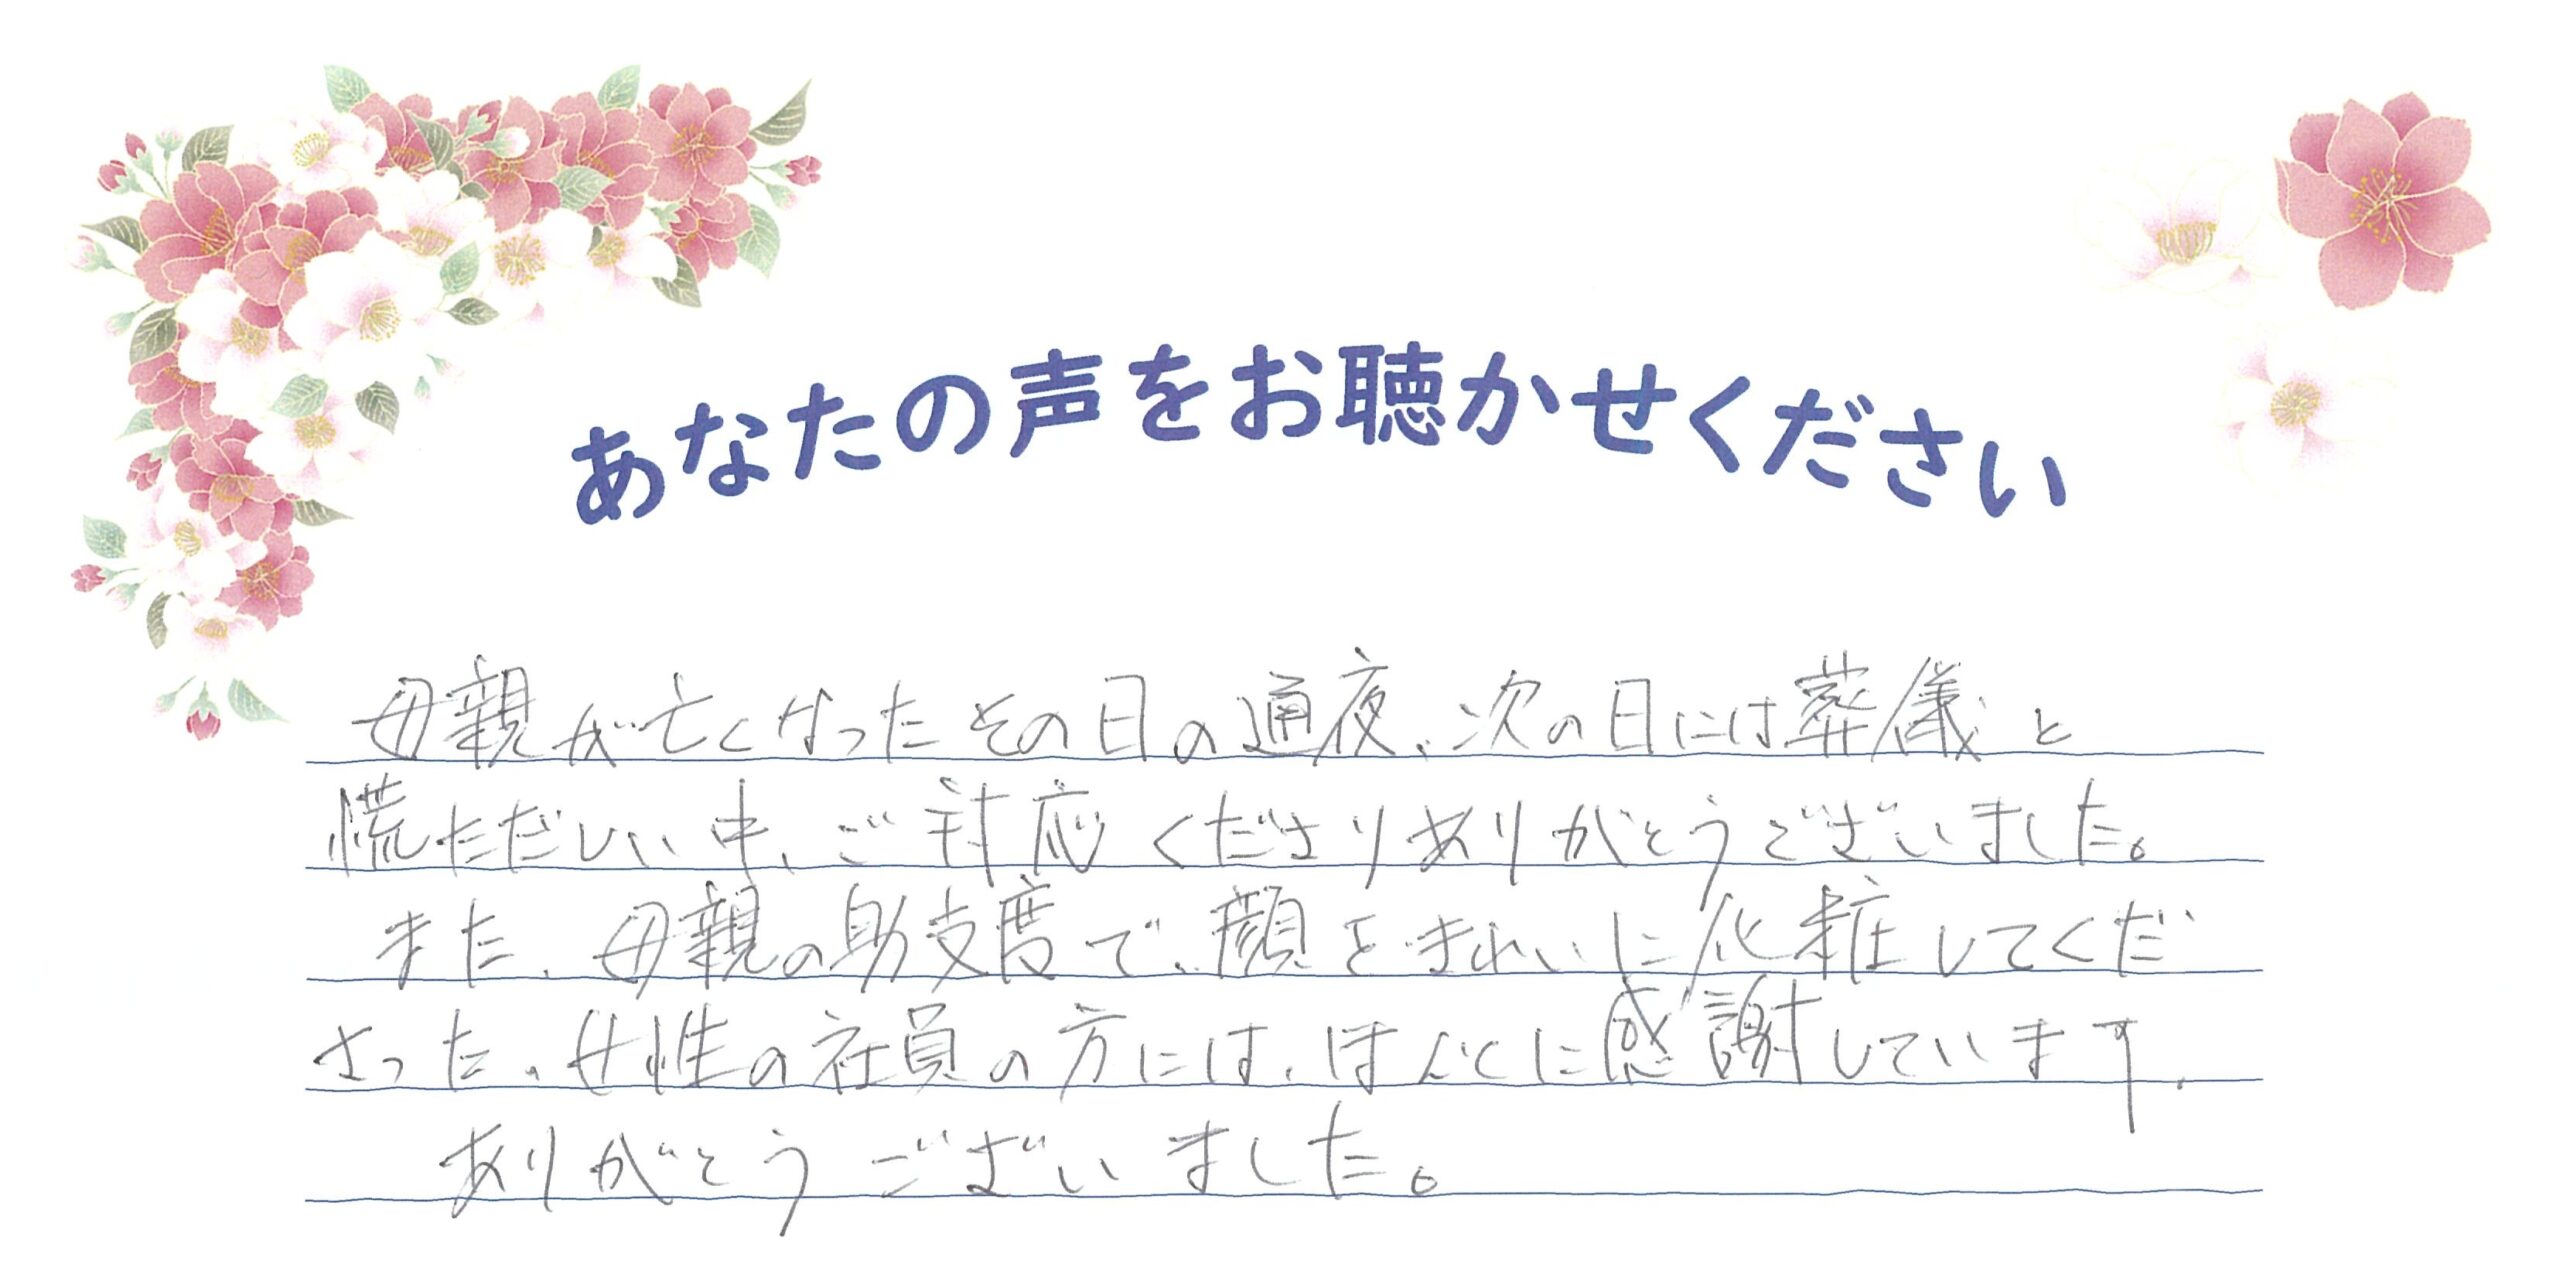 あなたの声をお聴かせください
母親が亡くなったその日の通夜、次の日には葬儀と
慌ただしい中、ご対応くださりありがとうございました。
また、母親の身支度で、顔をきれいに化粧してくだ
さった、女性の社員の方には、ほんとに感謝しています。
ありがとうございました。